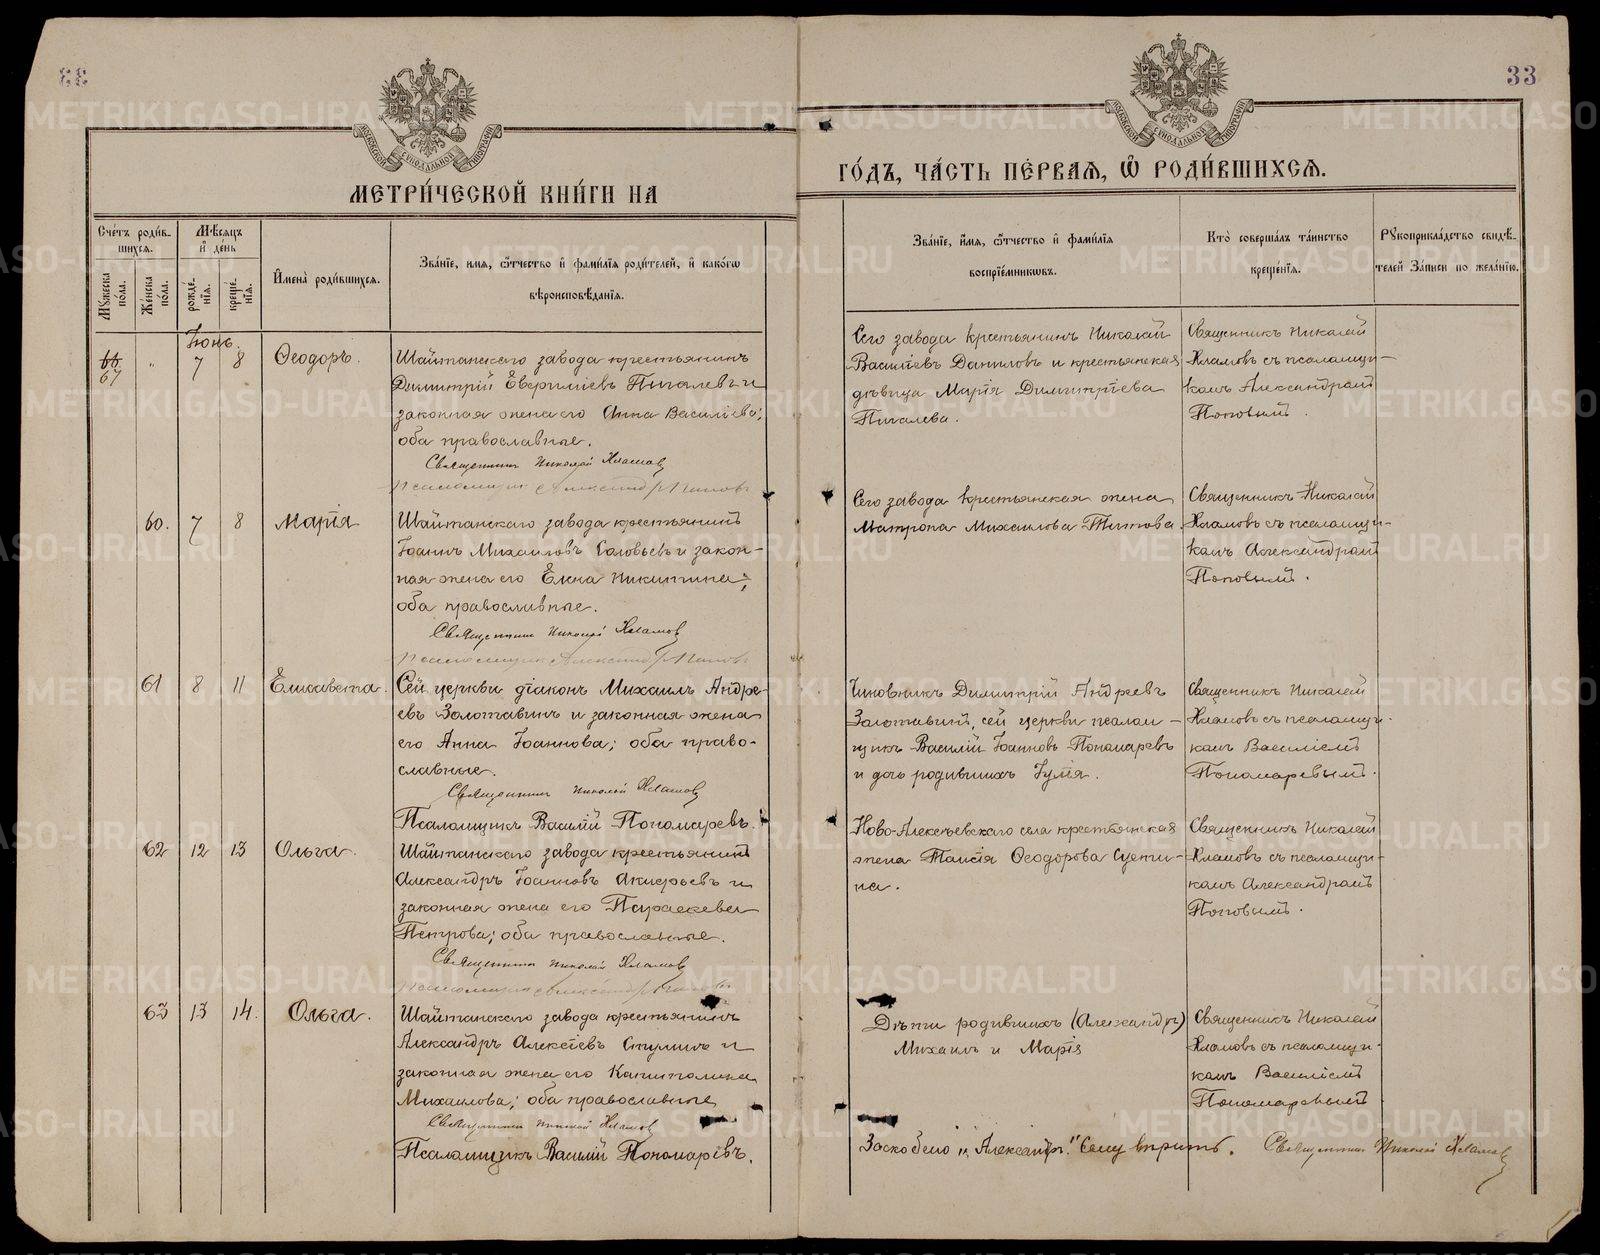 33
МЕТРИ́ЧЕСКОЙ КНИ́ГИ НА
ГО́ДЪ, ЧА́СТЬ ПЕ́РВАЯ, Ѽ РОДИ́ВШИХСЯ.
МОСКОВСКОЙ СѴНОДАЛЬНОЙ ТИПОГРАФІИ
МОСКОВСКОЙ СѴНОДАЛЬНОЙ ТИПОГРАФІИ
Сче́тъ роди́в-
шихся.
Му́жеска по́ла.
Же́нска по́ла.
Мѣ́сяцъ
и҆ де́нь
рожде́нїя.
креще́нїя.
И҆мена̀ роди́вшихся.
Зва́нїе, и́мя, ѻ҆́тчество и҆ фами́лїя роди́телей, и҆ како́гѡ
вѣроисповѣ́данїя.
Зва́нїе, и҆́мя, ѻ҆́тчество и҆ фами́лїя
воспрїе́мникѡвъ.
Кто̀ соверша́лъ та́инство
креще́нїя.
Рꙋкоприкла́дство свидѣ́-
телей За́писи по жела́нїю.
Іюнь.
66
67
"
7
8
Ѳеодоръ.
Шайтанскаго завода крестьянинъ
Димитрій Евгрипіевъ Пигалевъ и
законная жена его Анна Василіева;
оба православные.
Священникъ Николай Хламовъ
Псаломщик Александр Попов
Сего завода крестьянинъ Николай
Василіевъ Даниловъ и крестьянская
дѣвица Марія Димитріева
Пигалева.
Священникъ Николай
Хламовъ съ псаломщи-
камъ Александромъ
Поповымъ.
60.
7
8
Марія
Шайтанскаго завода крестьянинъ
Іоаннъ Михаиловъ Соловьевъ и закон-
ная жена его Елена Никитина;
оба православные.
Священникъ Николай Хламовъ
Псаломщик Александр Попов
Сего завода крестьянская жена
Матрона Михаилова Титова.
Священникъ Николай
Хламовъ съ псаломщи-
камъ Александромъ
Поповымъ.
61
8
11
Елисавета.
Сей церкви діаконъ Михаилъ Андре-
евъ Золотавинъ и законная жена
его Анна Іоаннова; оба право-
славные.
Священникъ Николай Хламовъ
Псаломщикъ Василій Пономаревъ.
Чиновникъ Димитрій Андреевъ
Золотавинъ, сей церкви псалом-
щикъ Василій Іоанновъ Пономаревъ
и дочь родившихъ Іулія.
Священникъ Николай
Хламовъ съ псаломщи-
камъ Василіемъ
Пономаревымъ.
62
12
13
Ольга.
Шайтанскаго завода крестьянинъ
Александръ Іоанновъ Акиньевъ и
законная жена его Параскева
Петрова; оба православные.
Священникъ Николай Хламовъ
Псаломщик Александр Попов
Ново-Алексѣевскаго села крестьянская
жена Таисія Ѳеодорова Сусти-
на.
Священникъ Николай
Хламовъ съ псаломщи-
камъ Александромъ
Поповымъ.
63
13
14.
Ольга.
Шайтанскаго завода крестьянинъ
Александръ Алексіевъ Стулинъ и
законная жена его Капитолина
Михаилова; оба православные
Священникъ Николай Хламовъ
Псаломщикъ Василій Пономаревъ.
Дѣти родившихъ (Александръ)
Михаилъ и Марія
Священникъ Николай
Хламовъ съ псаломщи-
камъ Василіемъ
Пономаревымъ
Заскоблено „Александръ." Сему вѣрить. Священникъ Николай Хламовъ
METRIKI.GASO-URAL.RU